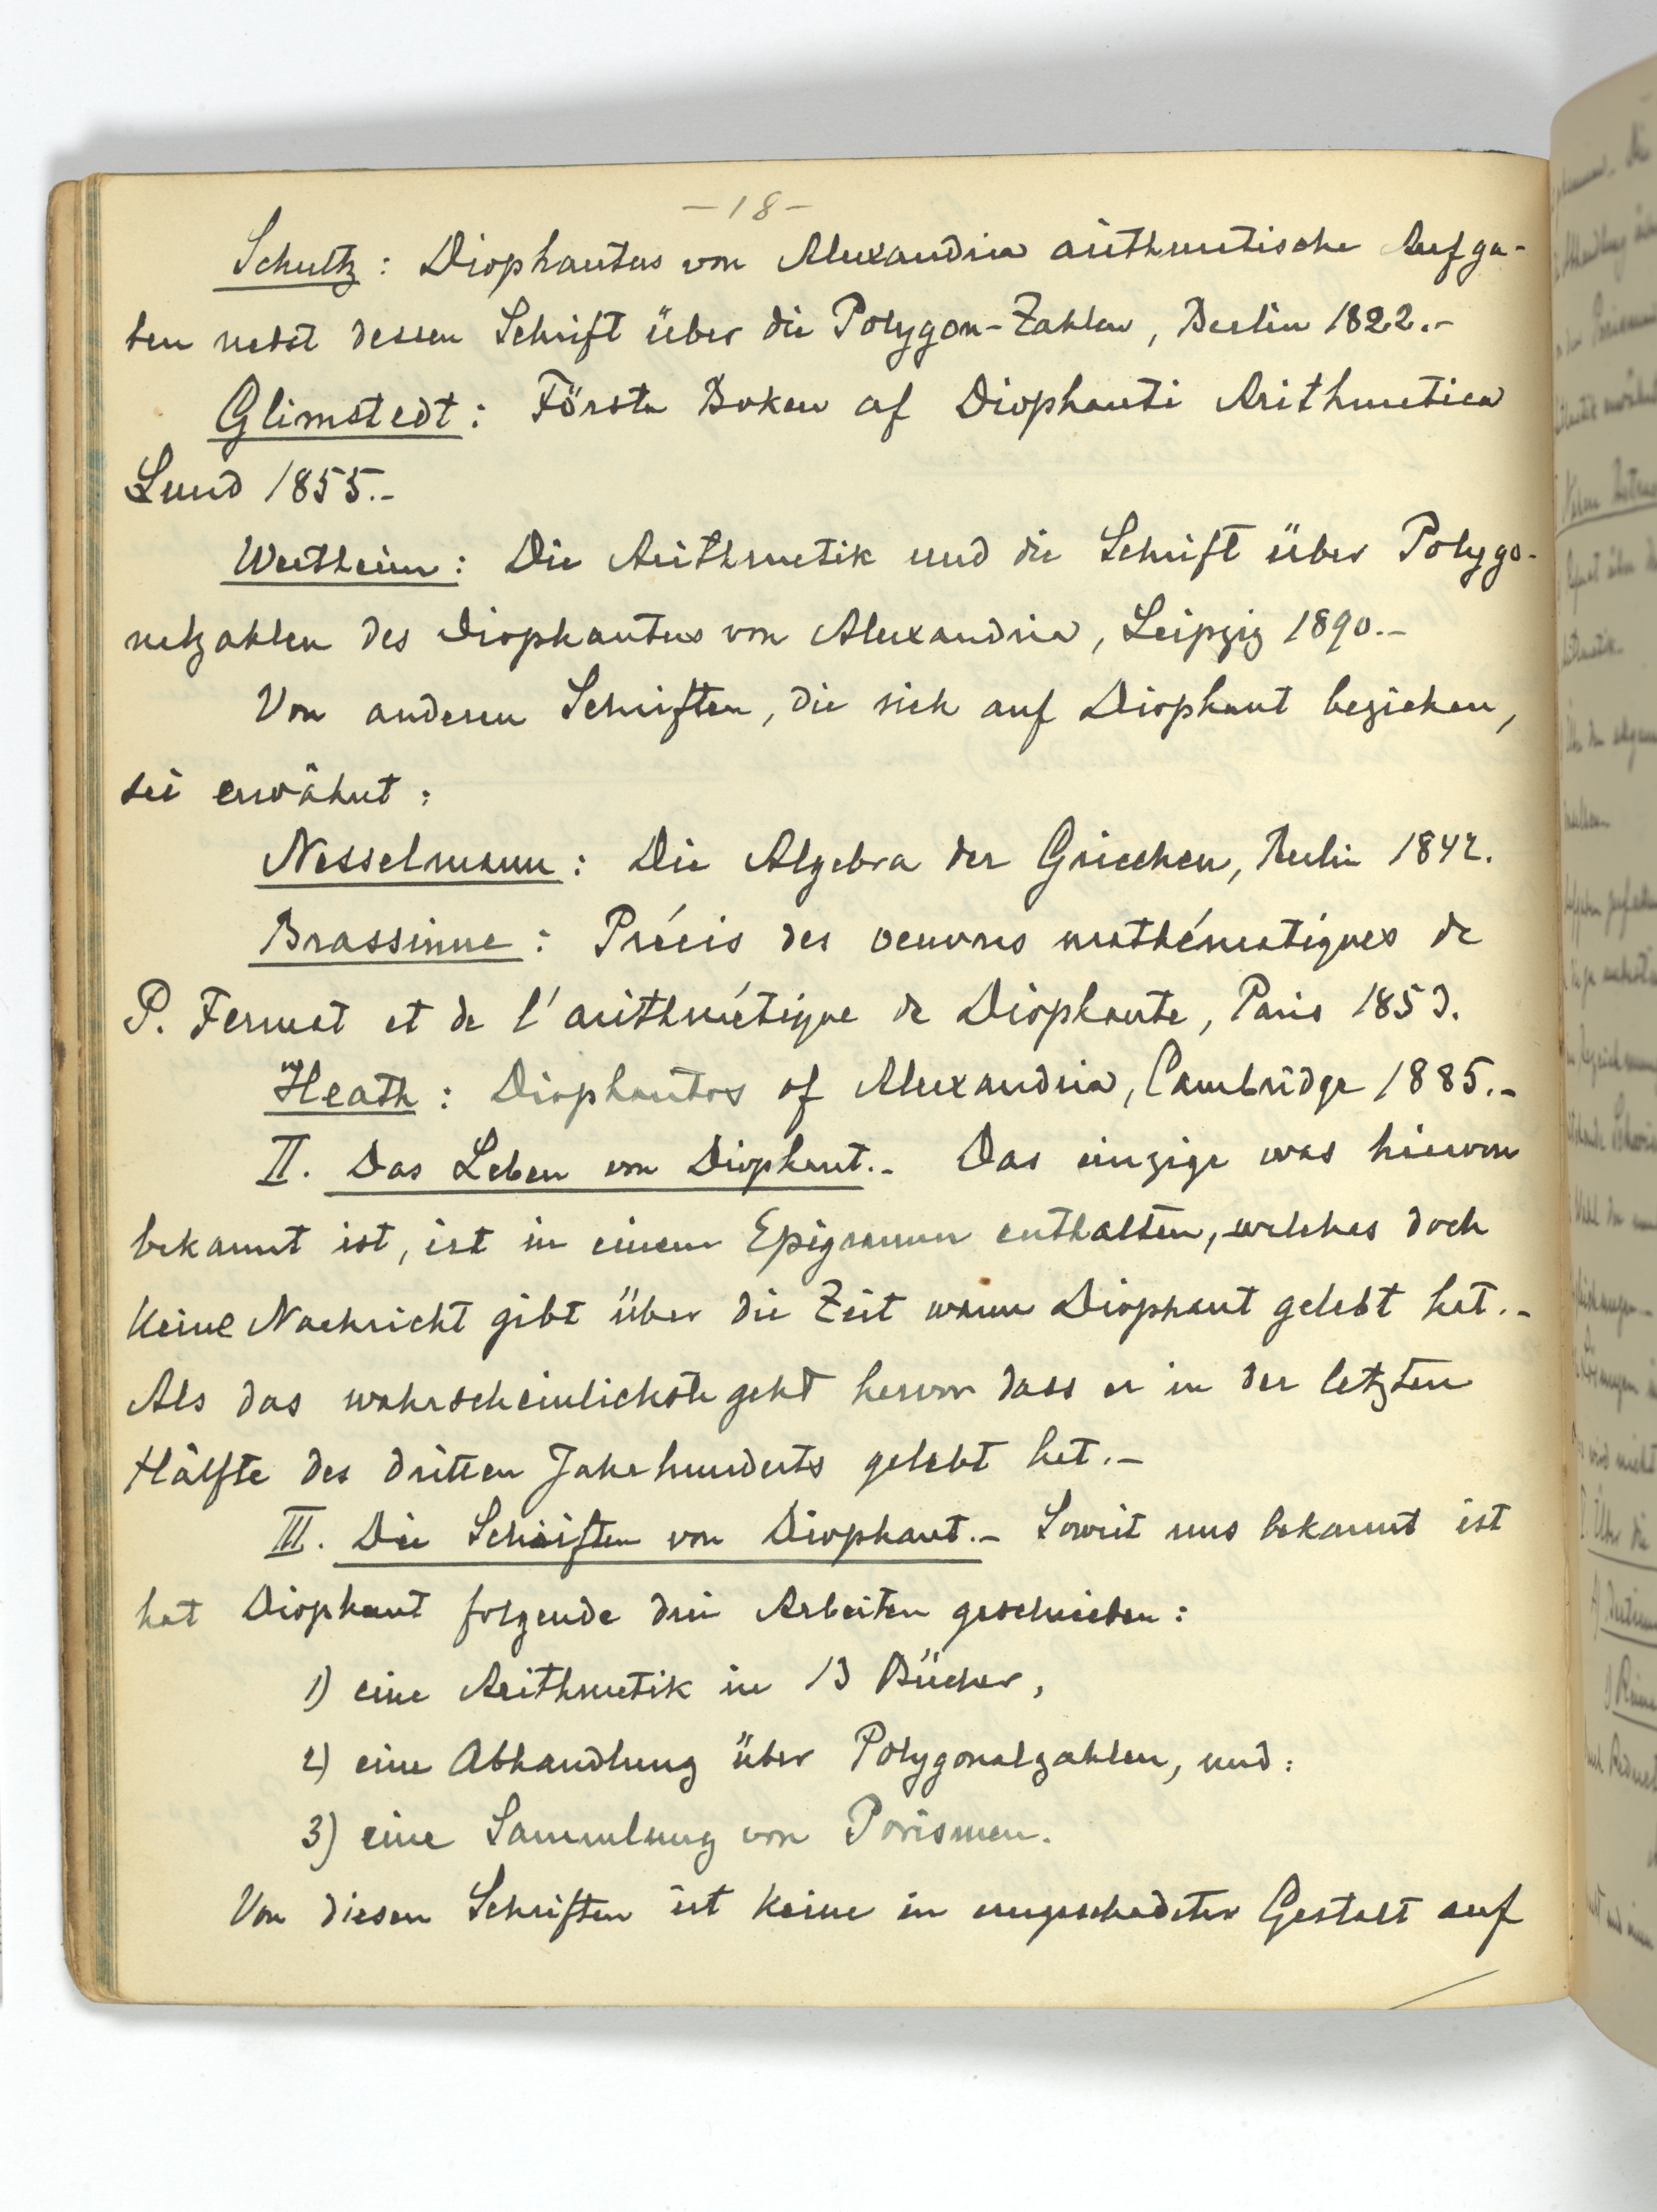 -18-
Schultz: Diophantus von Alexandria arithmetische Aufga-
ben nebst dessen Schrift über die Polygon-Zahlen, Berlin 1822.-
Glimstedt: Första Boken af Diophanti Arithmetica
Lund 1855.-
Wertheim: Die Arithmetik und die Schrift über Polygo-
nalzahlen des Diophantus von Alexandria, Leipzig 1890.-
Von anderen Schriften, die sich auf Diophant beziehen,
sei erwähnt:
Nesselmann: Die Algebra der Griechen, Berlin 1842.
Brassinne: Précis des oeuvres mathématiques de
P. Fermat et de l'arithmétique de Diophante, Paris 1853.
Heath: Diophantos of Alexandria, Cambridge 1885.-
II. Das Leben von Diophant.- Das einzige was hiervon
bekannt ist, ist in einem Epigramm enthalten, welches doch
keine Nachricht gibt über die Zeit wann Diophant gelebt hat.-
Als das wahrscheinlichste geht hervor dass er in der letzten
Hälfte des dritten Jahrhunderts gelebt hat.-
III. Die Schriften von Diophant.- Soweit uns bekannt ist
hat Diophant folgende drei Arbeiten geschrieben:
1) eine Arithmetik in 13 Bücher,
2) eine Abhandlung über Polygonalzahlen, und:
3) eine Sammlung von Porismen.
Von diesen Schriften ist keine in ungeschadeter Gestalt auf